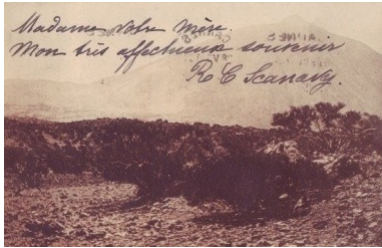 Madame votre mère.
Mon très affectueux souvenir
R C Scanavy.